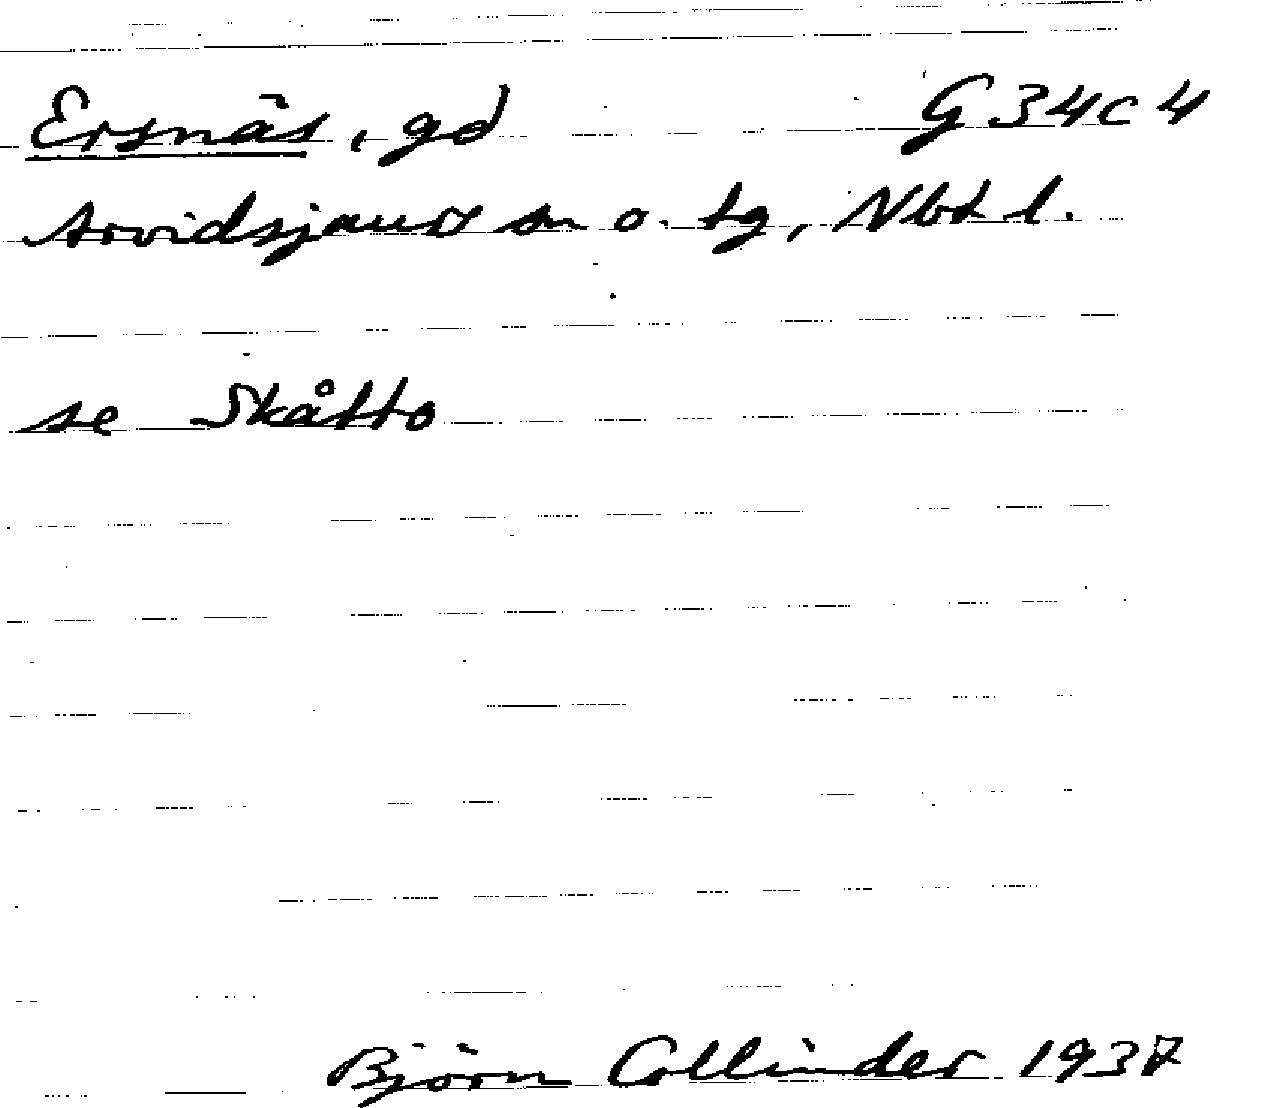 Ersnäs, gd G34c4
Arvidsjaurs sn o. tg, Nbt l.
se Skåtto
Björn Collinder 1937